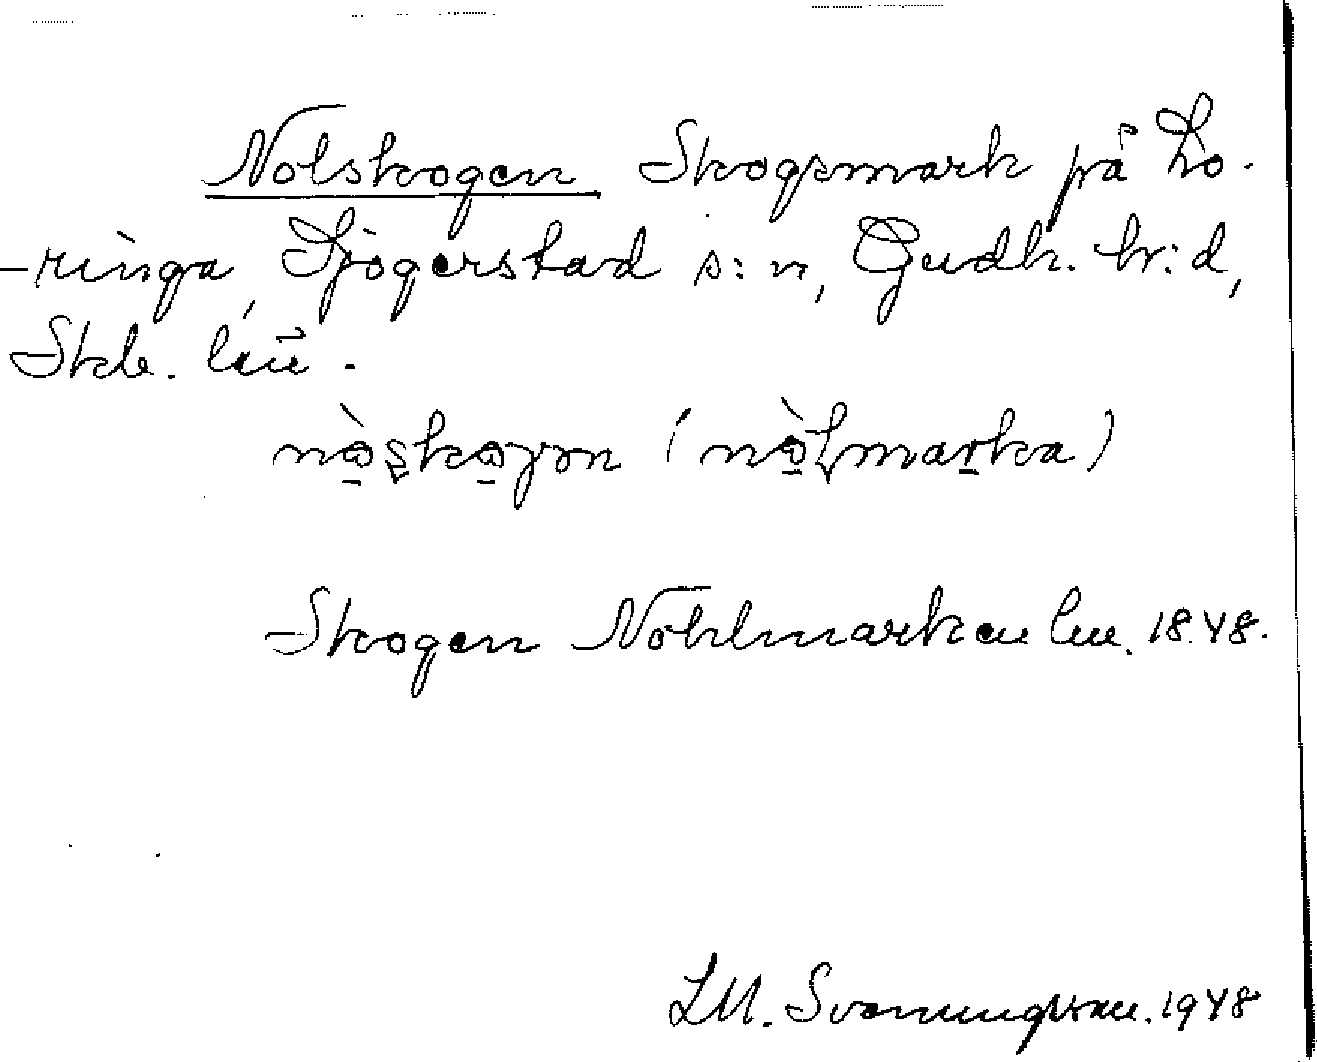 Nolskogen Skogsmark på Lo-
ringa, Sjogerstad s:n, Gudh. hr:d,
Skb. län.
nò̱ʂko̱γən (nò̱ɽmaṟka)
Skogen Nohlmarken lm. 1848.
LM. Svanungsson. 1948